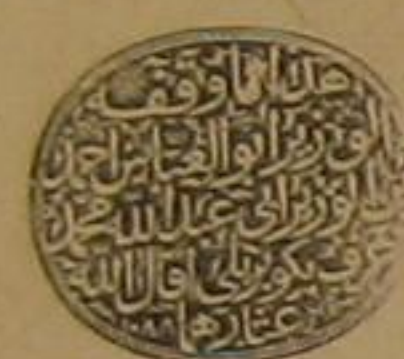 هذا ما وقفه
الوزير ابو العباس احمد
بن الوزير ابى عبد الله محمد
عرف بكوپريلى اقال الله
عثارهما ١٠٨٨